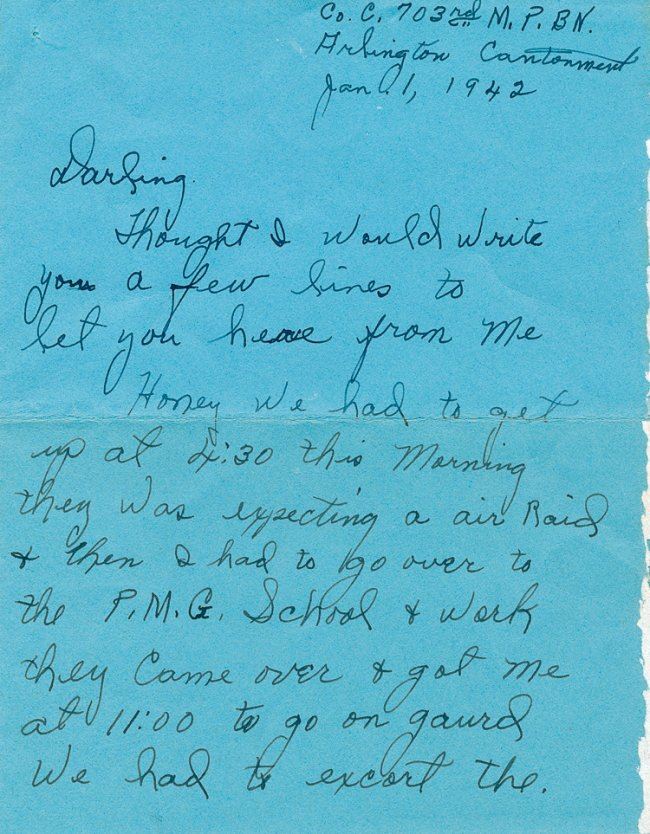 Co. C. 703rd M. P. BN.
Arlington Cantonment
Jan. 1, 1942
Darling
Thought I would write
you a few lines to
let you heare from me
Honey We had to get
up at 4:30 this Morning
they was expecting a air Raid
& then I had to go over to
the P.M.G. School & work
they Came over & got me
at 11:00 to go on gaurd
We had to excort the.